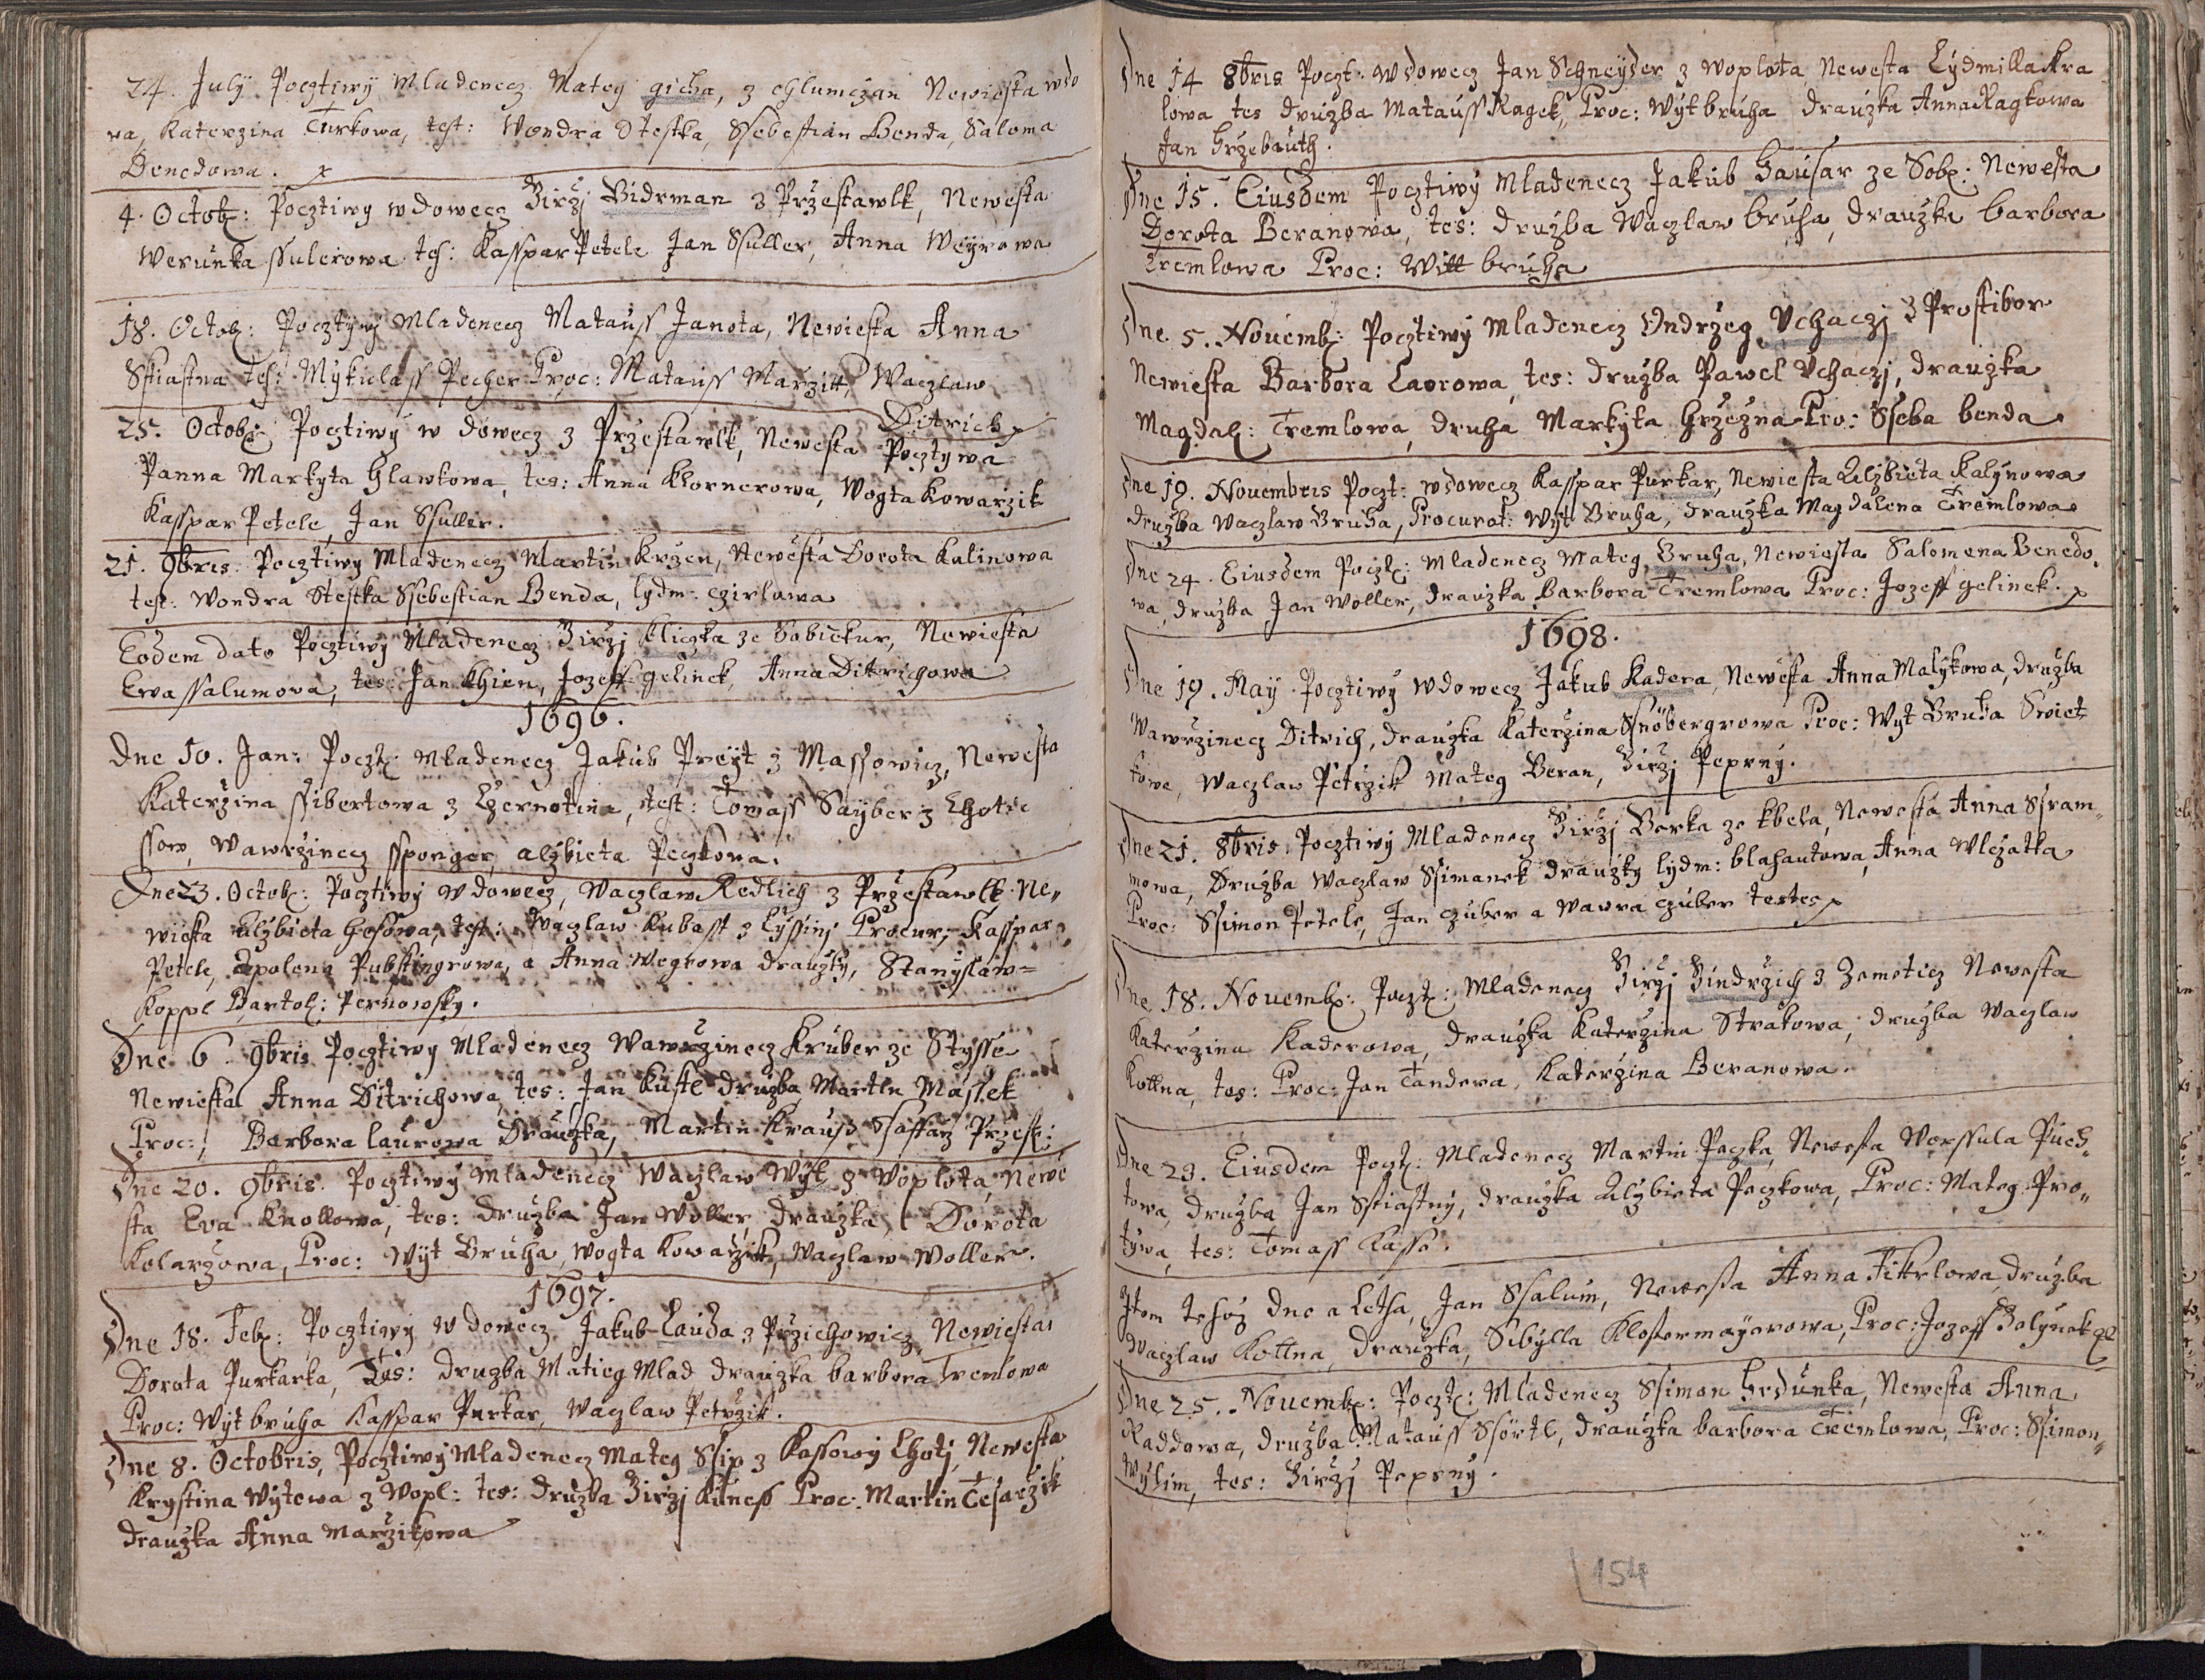 24. July Pocztiwy Mladenecz Mateg gicha, z chlumczan Newiesta wdo
wa, Katerzina Turkowa, test: Wondra Stestka, Ssebestian Benda, Saloma
Benedowa.
4. Octob: Pocztiwy wdowecz Jirzj Bidrman z Przestawlk, Newesta
Werunka ssulerowa tes: Kasspar Petele Jan Ssuller, Anna Weyrowa
18. Octob: Pocztywy Mladenecz Matauss Janota, Newiesta Anna
Sstiastna tes: Mykulass Pecher Proc: Matauss Marzitt, Waczlaw
Ditrich
25. Octob: Pocztiwy w dowecz z Przestawlk, Newesta Pocztywa
Panna Markyta Glawtowa, tes: Anna Khornerowa, Wogta Kowarzik
Kasspar Petele, Jan Ssuller.
21. 9bris. Pocztiwy Mladenecz Martin Krzen, Newesta Dorota Kalinowa
test: Wondra Stestka Ssebestian Benda, lydm: czirlowa
Eodem dato Pocztiwy Mladenecz Jirzj Kliczka ze Sobiekur, Newiesta
Ewa ssalumova, tes: Jan Khien, Jozeff gelinek, Anna Ditrichowa
1696.
Dne 10. Jan: Poczt: Mladenecz Jakub Preyt z Massowicz, Newesta
Katerzina ssibertowa z Czernotina, test: Tomass Sayber z Lhotie
ssow, Wawrzinecz ssponger, alzbieta Peczkowa.
Dne 23. Octob: Pocztiwy wdowecz, Waczlaw Redlich z Przestawlk Ne„
wiesta alzbieta Hosowa, test: Waczlaw Kubasst z Lyssinj Procur: Kasspar
Petele, Apolena Pubstingrowa, a Anna Wegrowa drauzky, Stanyslaw=
Koppl Bartol: Pernowsky.
Dne 6. 9bris Pocztiwy Mladenecz Wawrzinecz Kruber ze Stysse
Newiesta Anna Ditrichowa, tes: Jan Kustl druzba, Martin Massek
Proc:, Barbora laurowa Drauzka, Martin Krauss Ssaffarz Przest:
Dne 20. 9bris. Pocztiwy Mladenecz Waczlaw Wyt z Woplota, Newe
sta Eva Knollowa, tes: druzba Jan Woller drauzka, Dorota
Kolarzowa, Proc: Wyt Bruha, Wogta Kowarzik, Waczlaw Woller.
1697.
Dne 18. Feb: Pocztiwy wdowecz Jakub Lauda z Przichowicz, Newiesta
Dorota Purkarka, Tes: druzba Matieg Mlad drauzka barbora Tremlowa
Proc: Wyt bruha Kasspar Purkar, Waczlaw Petrzik.
Dne 8. Octobris, Pocztiwy Mladenecz Mateg Ssip z Kassowy Lhotj, Newesta
Krystina Wytowa z Wopl: tes: druzba Jirzj Kuness Proc: Martin Tesarzik
drauzka Anna Marzikowa
Dne 14 8bris Poczt: wdowecz Jan Schneyder z Woplota Newesta Lydmilla Kra
lowa tes druzba Matauss Ragek, Proc: Wyt bruha drauzka Anna Ragkowa
Jan Hrzebauth.
Dne 15. Eiusdem Pocztiwy Mladenecz Jakub Hausar ze Sob: Newesta
Dorota Beranowa, tes: druzba Waczlaw bruha, drauzka barbora
Tremlowa Proc: Witt bruha
Dne 5. Nouemb: Pocztiwy Mladenecz Ondrzeg Vchaczj z Prostibor
Newiesta Barbora Laorowa, tes: druzba Pawel Vchaczj, drauzka
Magdal: Tremlowa, druha Markyta Hrzezna Pro: Sseba benda
Dne 19. Nouembris Poczt: wdowecz Kasspar Purkar, Newiesta Alzbieta Kalynowa
druzba Waczlaw Bruha, Procurat: Wyt Bruha, drauzka Magdalena Tremlowa
Dne 24. Eiusdem Poczt: Mladenecz Mateg Bruha, Newiesta Salomena Benedo„
wa, druzba Jan Woller, drauzka Barbora Tremlowa Proc: Jozeff gelinek.
1698.
Dne 19. May Pocztiwy wdowecz Jakub Kadera, Newesta Anna Malykowa, druzba
Wawrzinecz Ditrich, drauzka Katerzina Ssnöbergrowa Proc: Wyt Bruha Swiet
kowe, Waczlaw Petrzik Mateg Beran, Jirzj Peprny.
Dne 21. 8bris. Pocztiwy Mladenecz Jirzj Borka ze Kbela, Newesta Anna Ssram„
mowa, Druzba Waczlaw Ssimanek drauzky lydm: blahautowa, Anna Wlczatka
Proc: Ssimon Petele, Jan czuber a Wawra czuber testes
Dne 18. Nouemb: Poczt: Mladenecz Jirzj Jindrzich z Zemeticz Newesta
Katerzina Kaderowa, drauzka Katerzina Strakowa, druzba Waczlaw
Kottna, tes: Proc: Jan Tandera, Katerzina Beranowa.
Dne 23. Eiusdem Poczt: Mladenecz Martin Peczka, Newesta Worssula Puch„
towa, druzba Jan Sstiastny, drauzka Alzbieta Peczkowa, Proc: Mateg Pro„
tywa, tes: Tomass Kasse.
Item tehoz dne a Letha, Jan Ssalum, Newesta Anna Fikrlowa, druzba
Waczlaw Kottna, drauzka, Sibylla Klostermayerowa, Proc: Jozeff Jelynek
Dne 25. Nouemb: Poczt: Mladenecz Ssimon Hrdunka, Newesta Anna
Raddowa, druzba Matauss Ssörtl, drauzka barbora Tremlowa, Proc: Ssimon„
Wylim, tes: Jirzj Peprny.
154